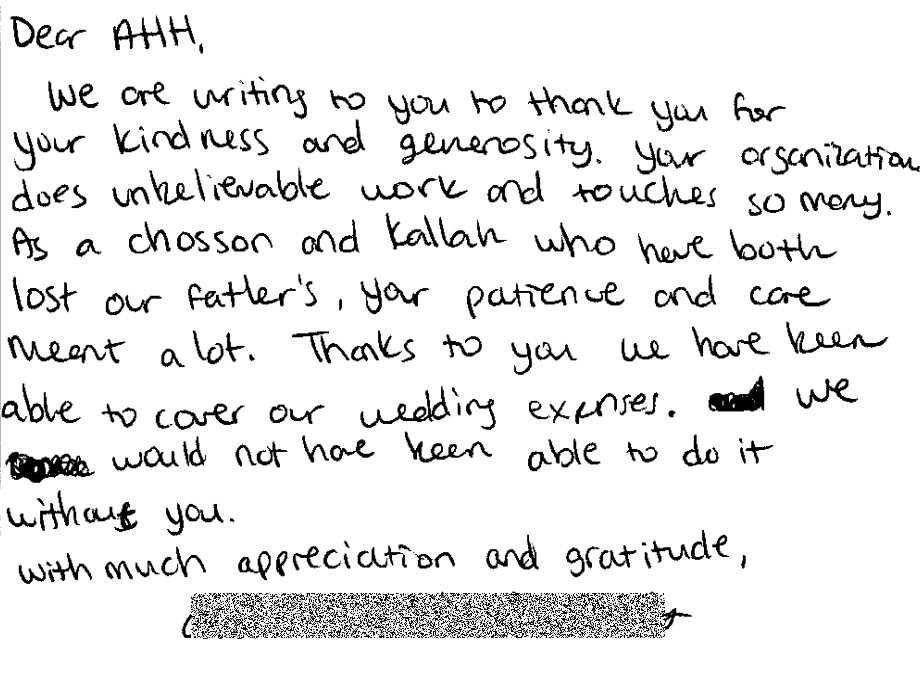 Dear AHH,
We are writing to you to thank you for
your kindness and generosity. Your organization
does unbelievable work and touches so many.
As a chosson and kallah who have both
lost our father's, your patience and care
meant a lot. Thanks to you we have been
able to cover our wedding expenses. we
would not have been able to do it
without you.
with much appreciation and gratitude,